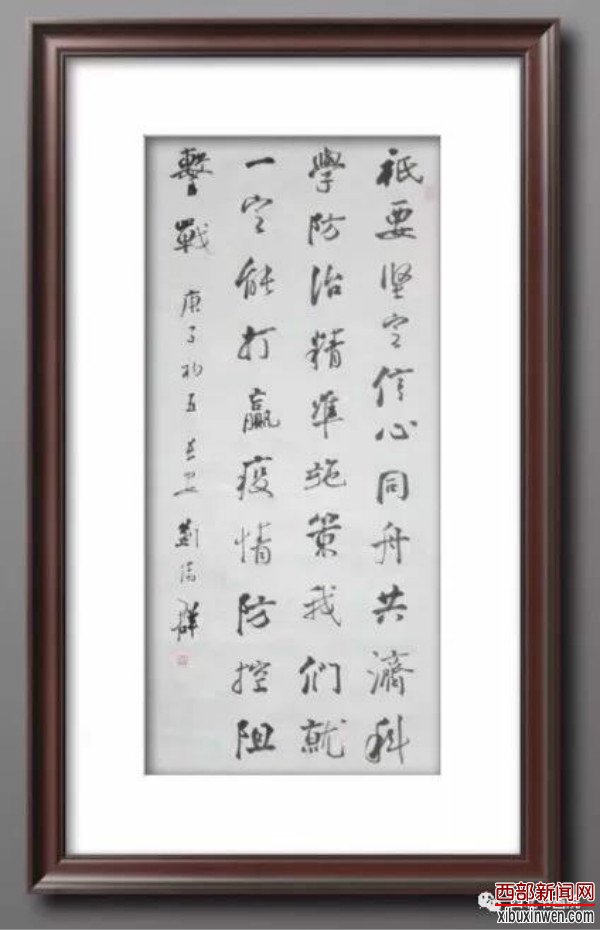 祇要坚定信心同舟共濟科
學防治精準施策我们就
一定能打贏疫情防控阻
擊戰 庚子初五 劉 群
西部新闻网
xibuxinwen.com